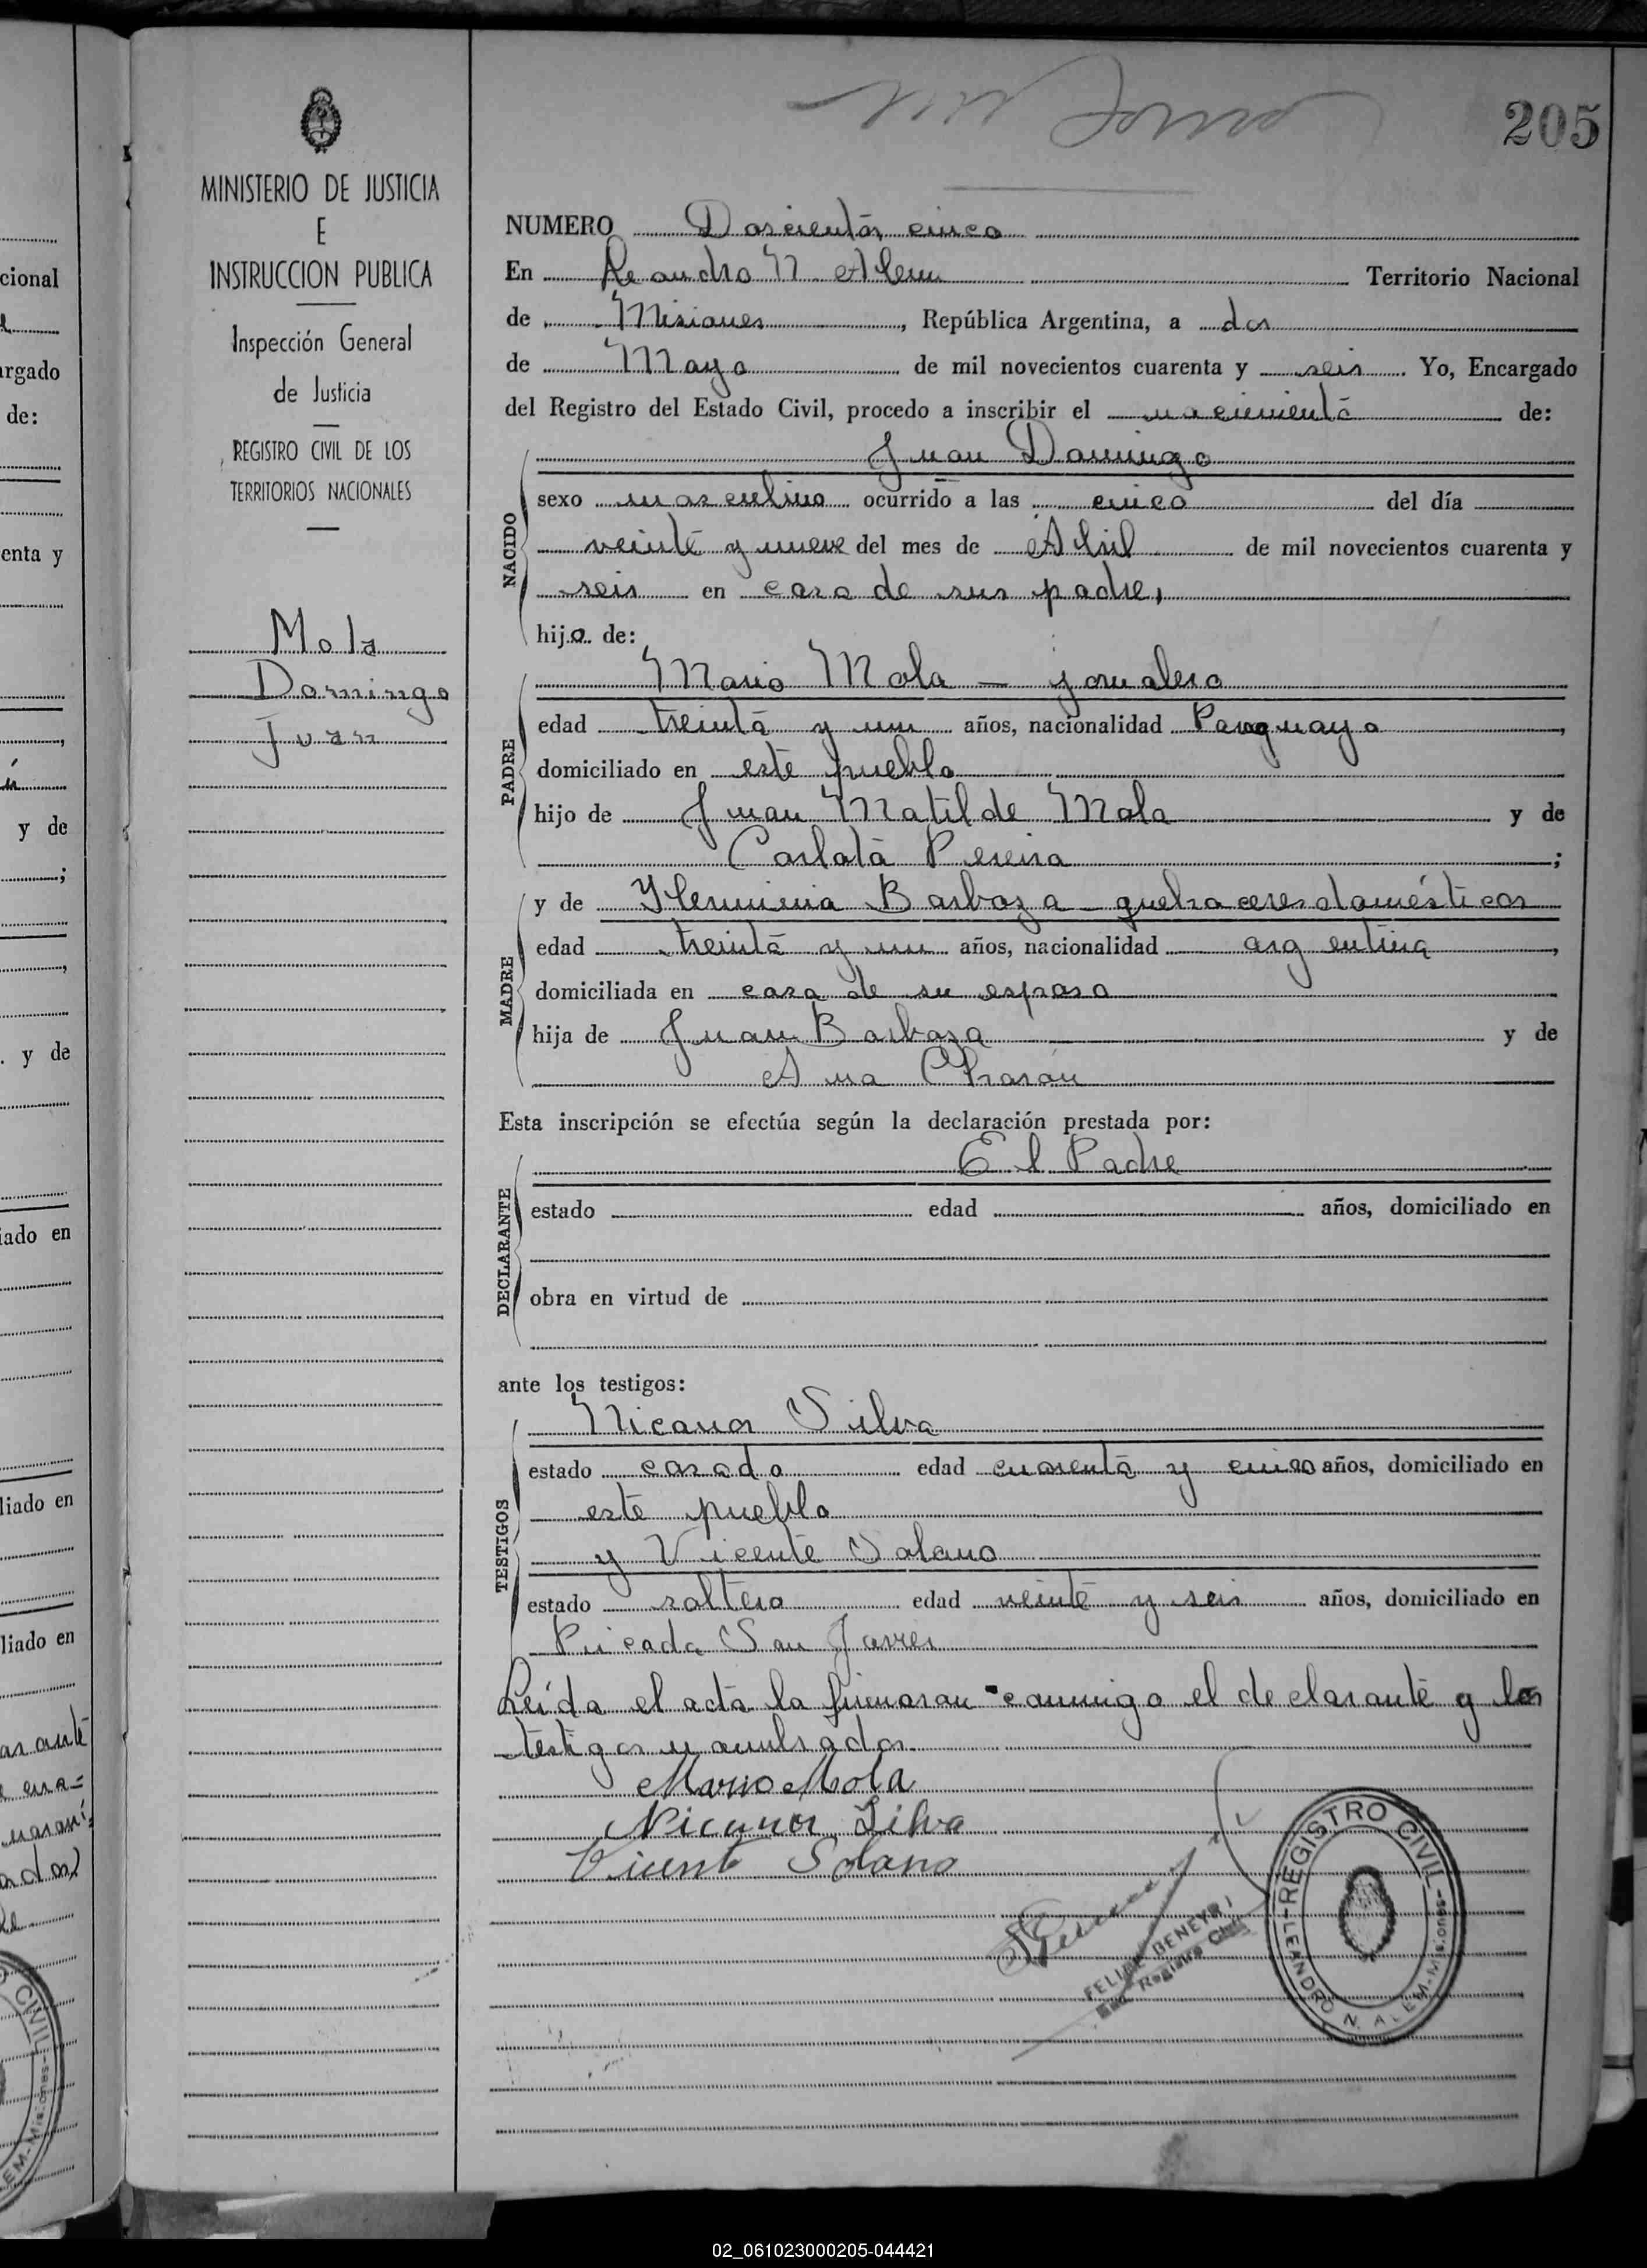 205
MINISTERIO DE JUSTICIA
E
INSTRUCCION PUBLICA
Inspección General
de Justicia
REGISTRO CIVIL DE LOS
TERRITORIOS NACIONALES
Mola
Domingo
Juan
NUMERO Doscientos cinco
En Leandro N Alem Territorio Nacional
de Misiones, República Argentina, a dos
de Mayo de mil novecientos cuarenta y seis. Yo, Encargado
del Registro del Estado Civil, procedo a inscribir el nacimiento de:
Juan Domingo
NACIDO
sexo masculino ocurrido a las cinco del día
veinte y nueve del mes de Abril de mil novecientos cuarenta y
seis en casa de sus padre,
hijo de:
Mario Mola — jornalero
PADRE
edad treinta y un años, nacionalidad Paraguayo,
domiciliado en este pueblo
hijo de Juan Matilde Mola y de
Carlota Pereira;
y de Herminia Barboza - quehaceres domésticos
MADRE
edad treinta y un años, nacionalidad argentina,
domiciliada en casa de su esposo
hija de Juan Barboza y de
Ana
Esta inscripción se efectúa según la declaración prestada por:
El Padre
DECLARANTE
estado edad años, domiciliado en
obra en virtud de
ante los testigos:
Nicanor Silva
TESTIGOS
estado casado edad cuarenta y cinco años, domiciliado en
este pueblo
y Vicente Solano
estado soltero edad veinte y seis años, domiciliado en
Picada San Javier
Leída el acta la firmaron conmigo el declarante y los
testigos nombrados.
Mario Mola
Nicanor Silva
Vicente Solano
Registro Civil
REGISTRO CIVIL
LEANDRO N. ALEM-Misiones-
cional
argado
de:
enta y
y de
. y de
iado en
liado en
liado en
02_061023000205-044421